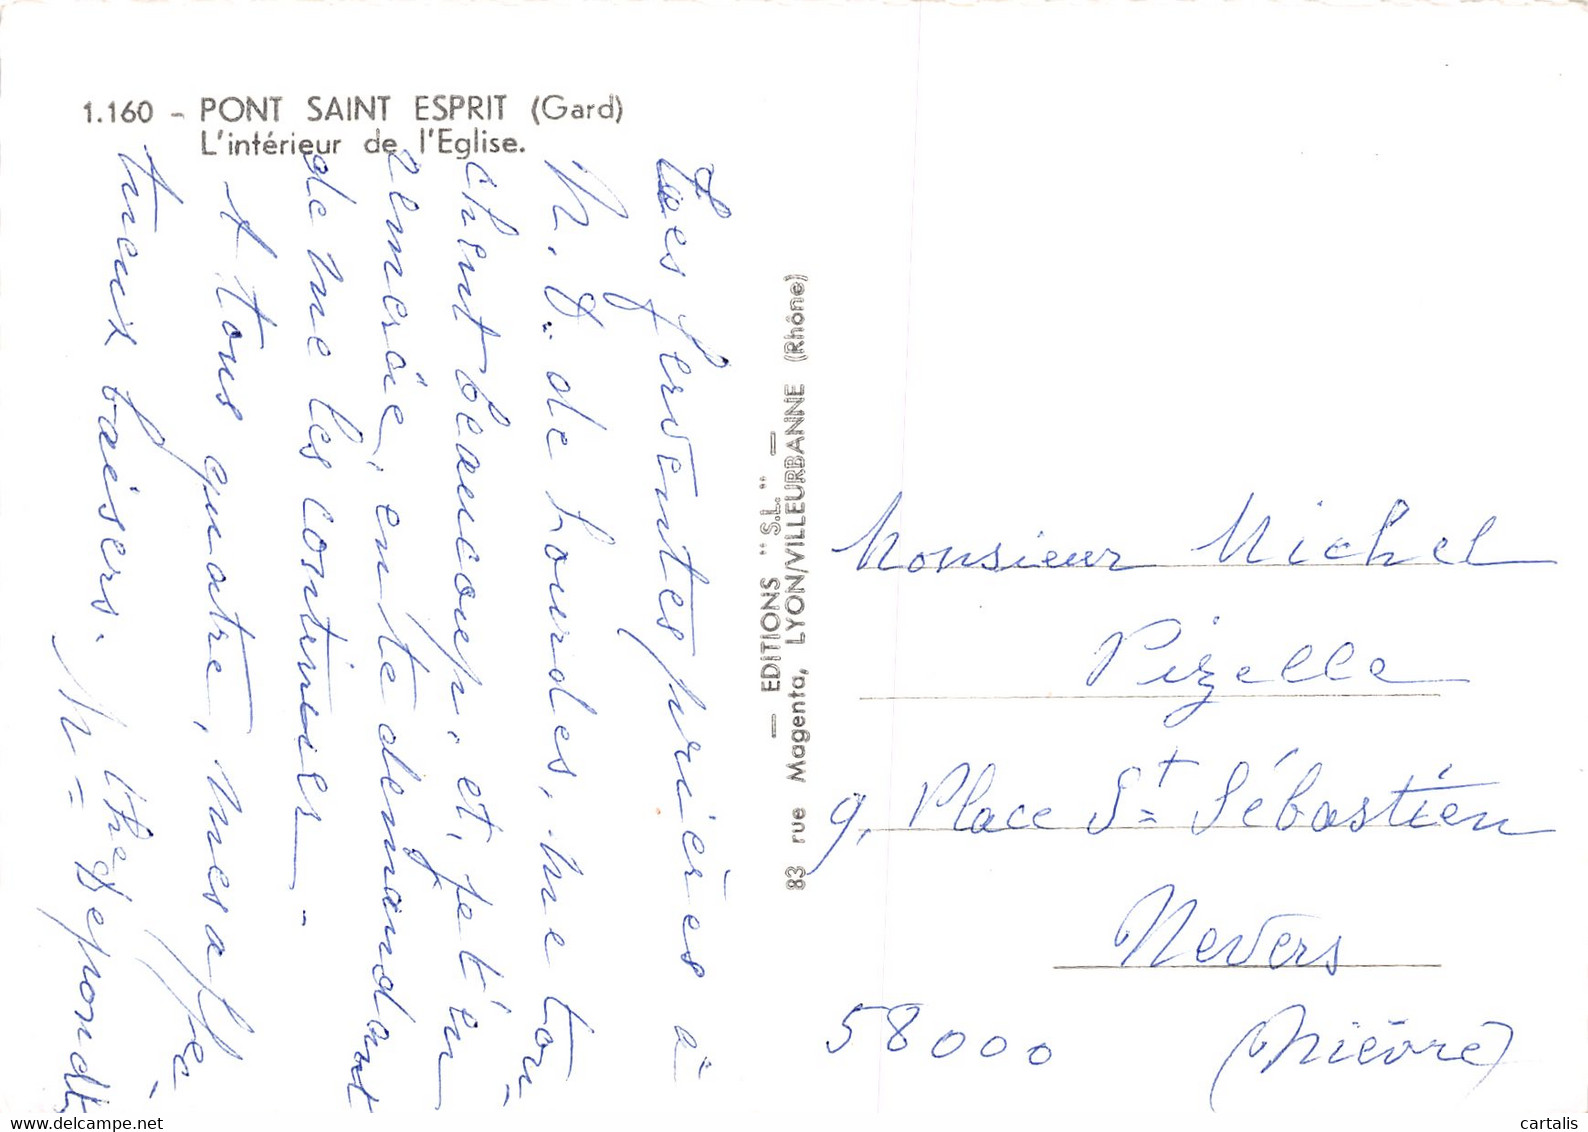 1.160 - PONT SAINT ESPRIT (Gard)
L'intérieur de l'Eglise.
Tes ferventes prières à
N. D. de Lourdes, me tou-
chent beaucoup, et, je t'en
remercie, en te demandant
de me les continuer -
A tous quatre, mes affec-
tueux baisers.
— EDITIONS "S.L." —
83 rue Magenta, LYON/VILLEURBANNE (Rhône)
Monsieur Michel
Pizelle
9, Place St Sébastien
Nevers
58000 (Nièvre)
cartalis